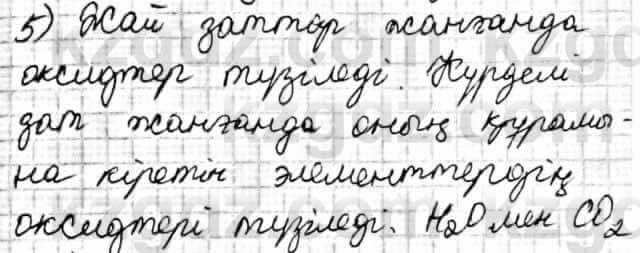 5) Жай заттар жанғанда
оксидтер түзіледі. Күрделі
зат жанғанда оның құрамы-
на кіретін элементтердің
оксидтері түзіледі. H₂O мен CO₂